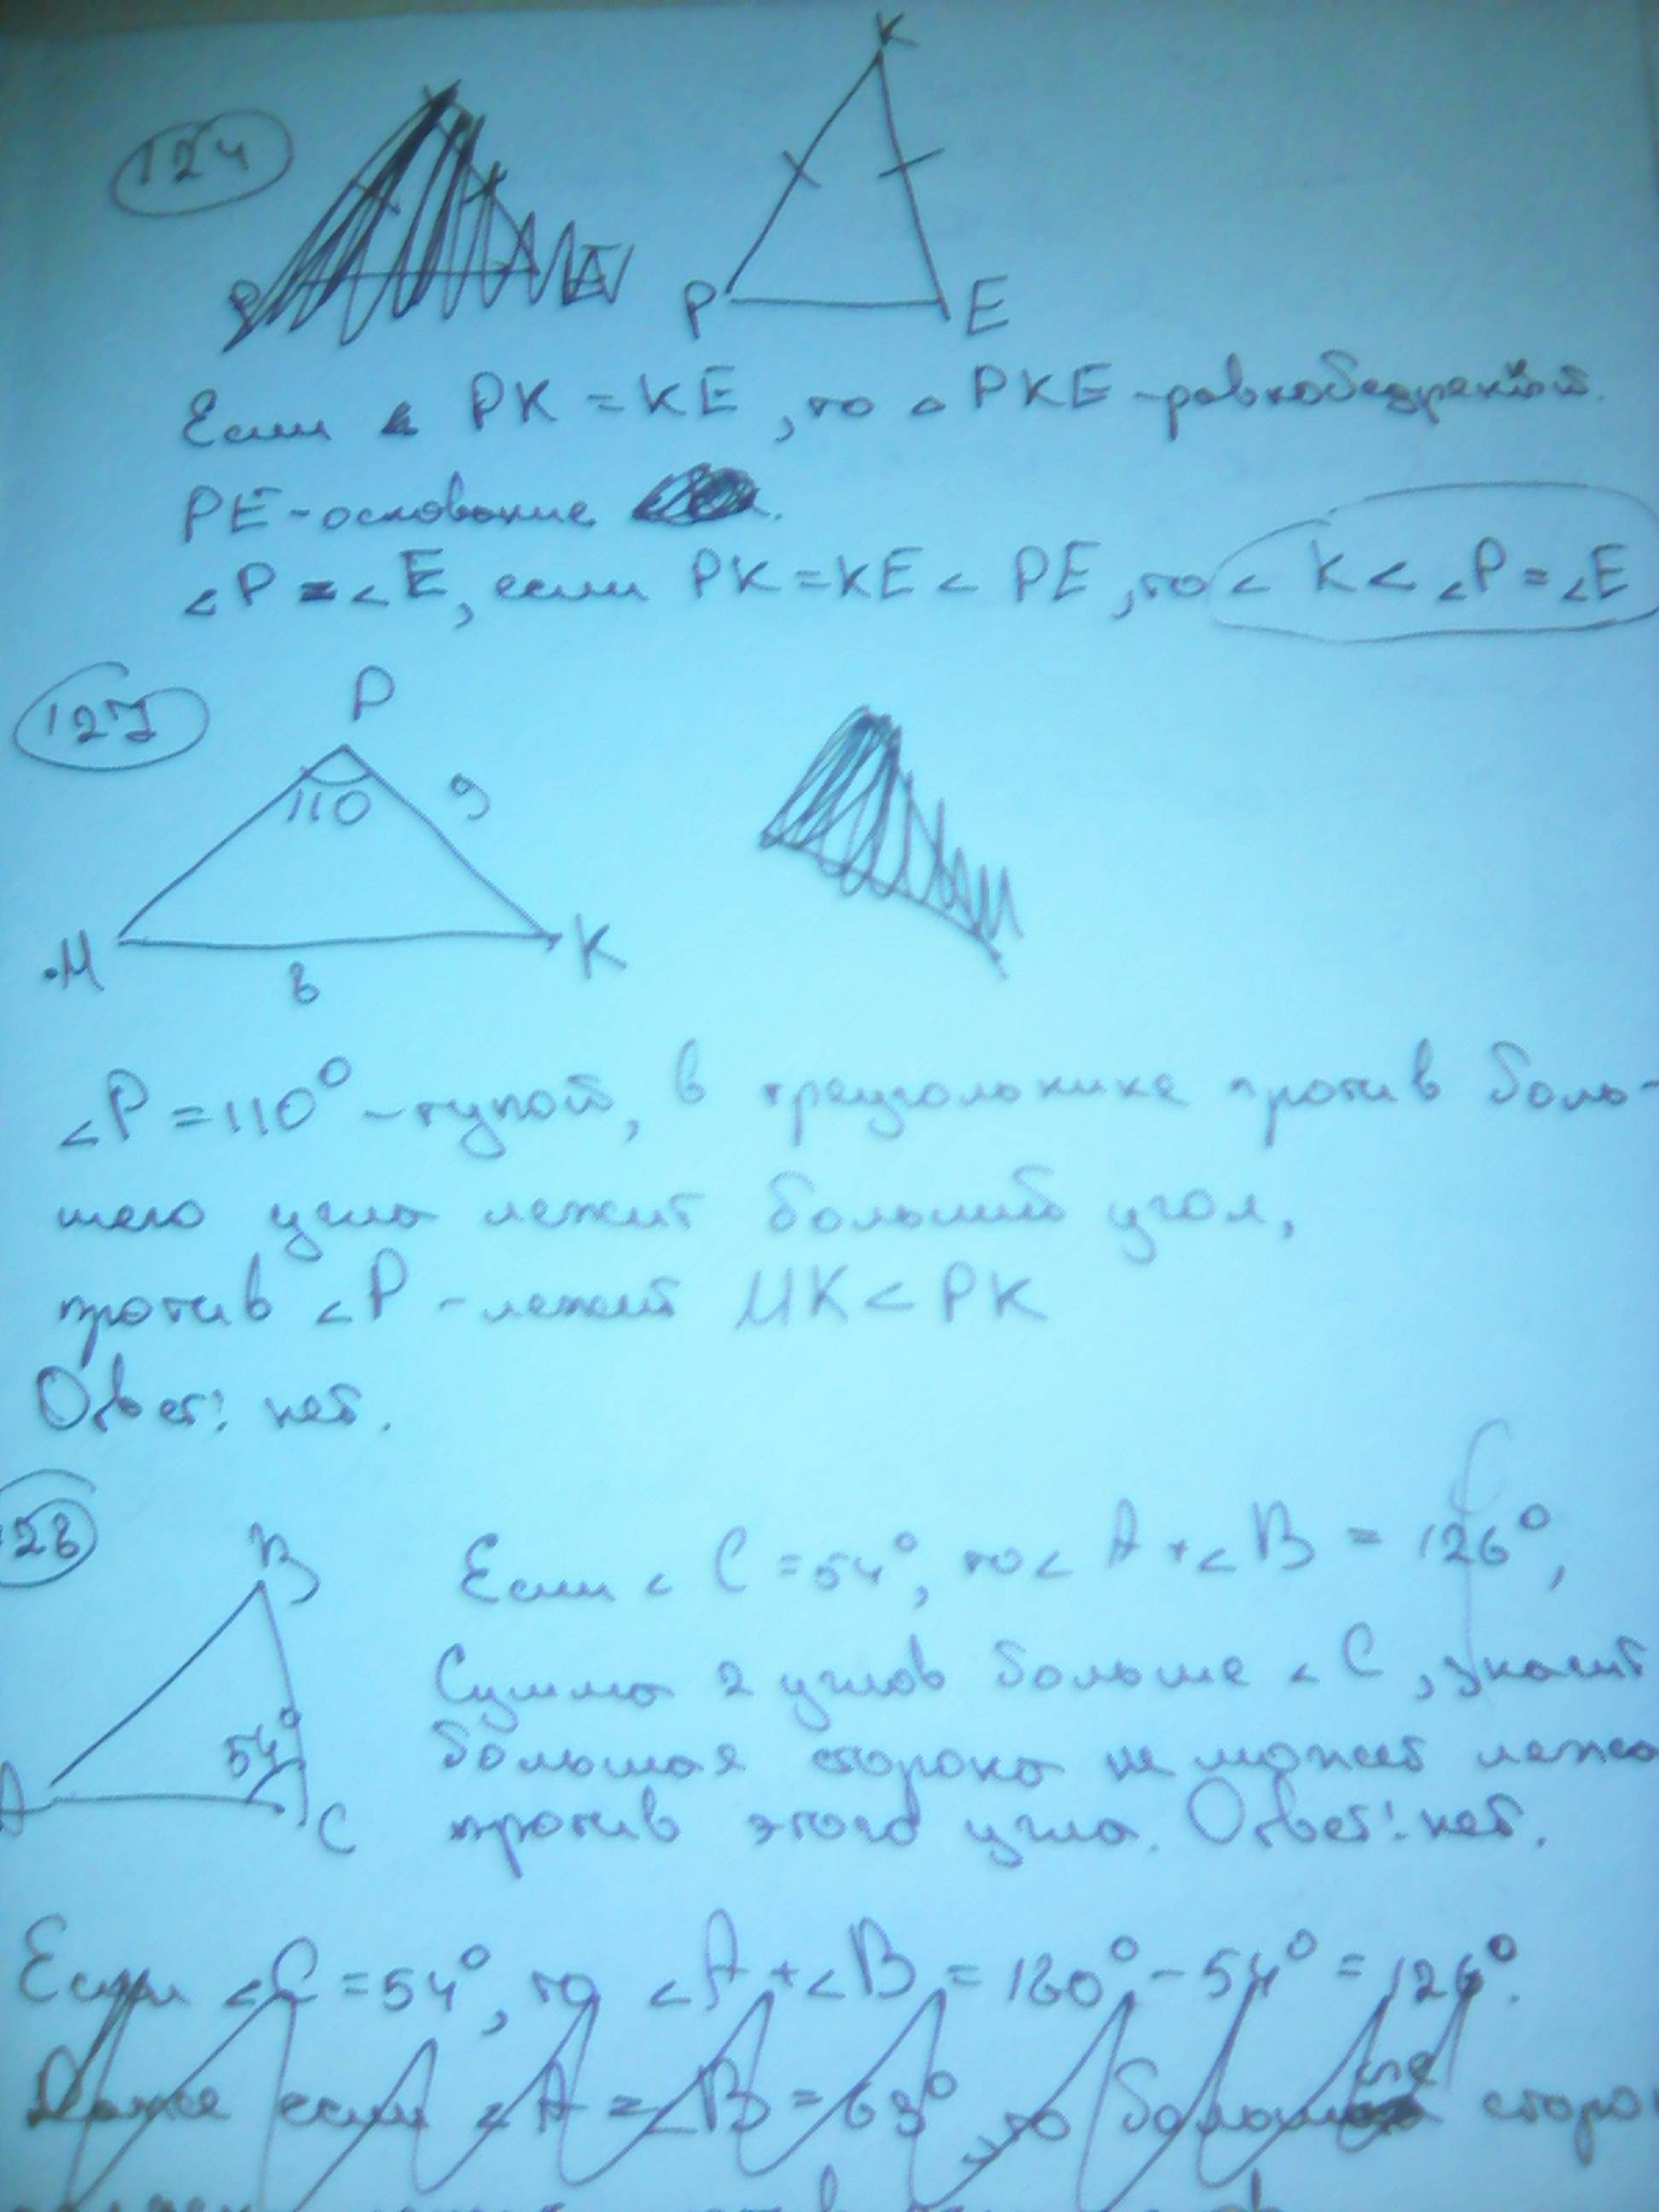 124
K
P E
Если PK = KE, то △ PKE - равнобедренный.
PE - основание
∠P = ∠E, если PK = KE < PE, то ∠K < ∠P = ∠E
127
P
110 9
M K
8
∠P = 110° - тупой, в треугольнике против боль-
шего угла лежит больший угол,
против ∠P - лежит MK < PK
Ответ: нет.
128
B
54°
A C
Если ∠C = 54°, то ∠A + ∠B = 126°,
Сумма 2 углов больше ∠C, значит
большая сторона не может лежа
против этого угла. Ответ: нет.
Если ∠C = 54°, то ∠A + ∠B = 180° - 54° = 126°.
Даже если ∠A = ∠B = 63°, то большая сторо